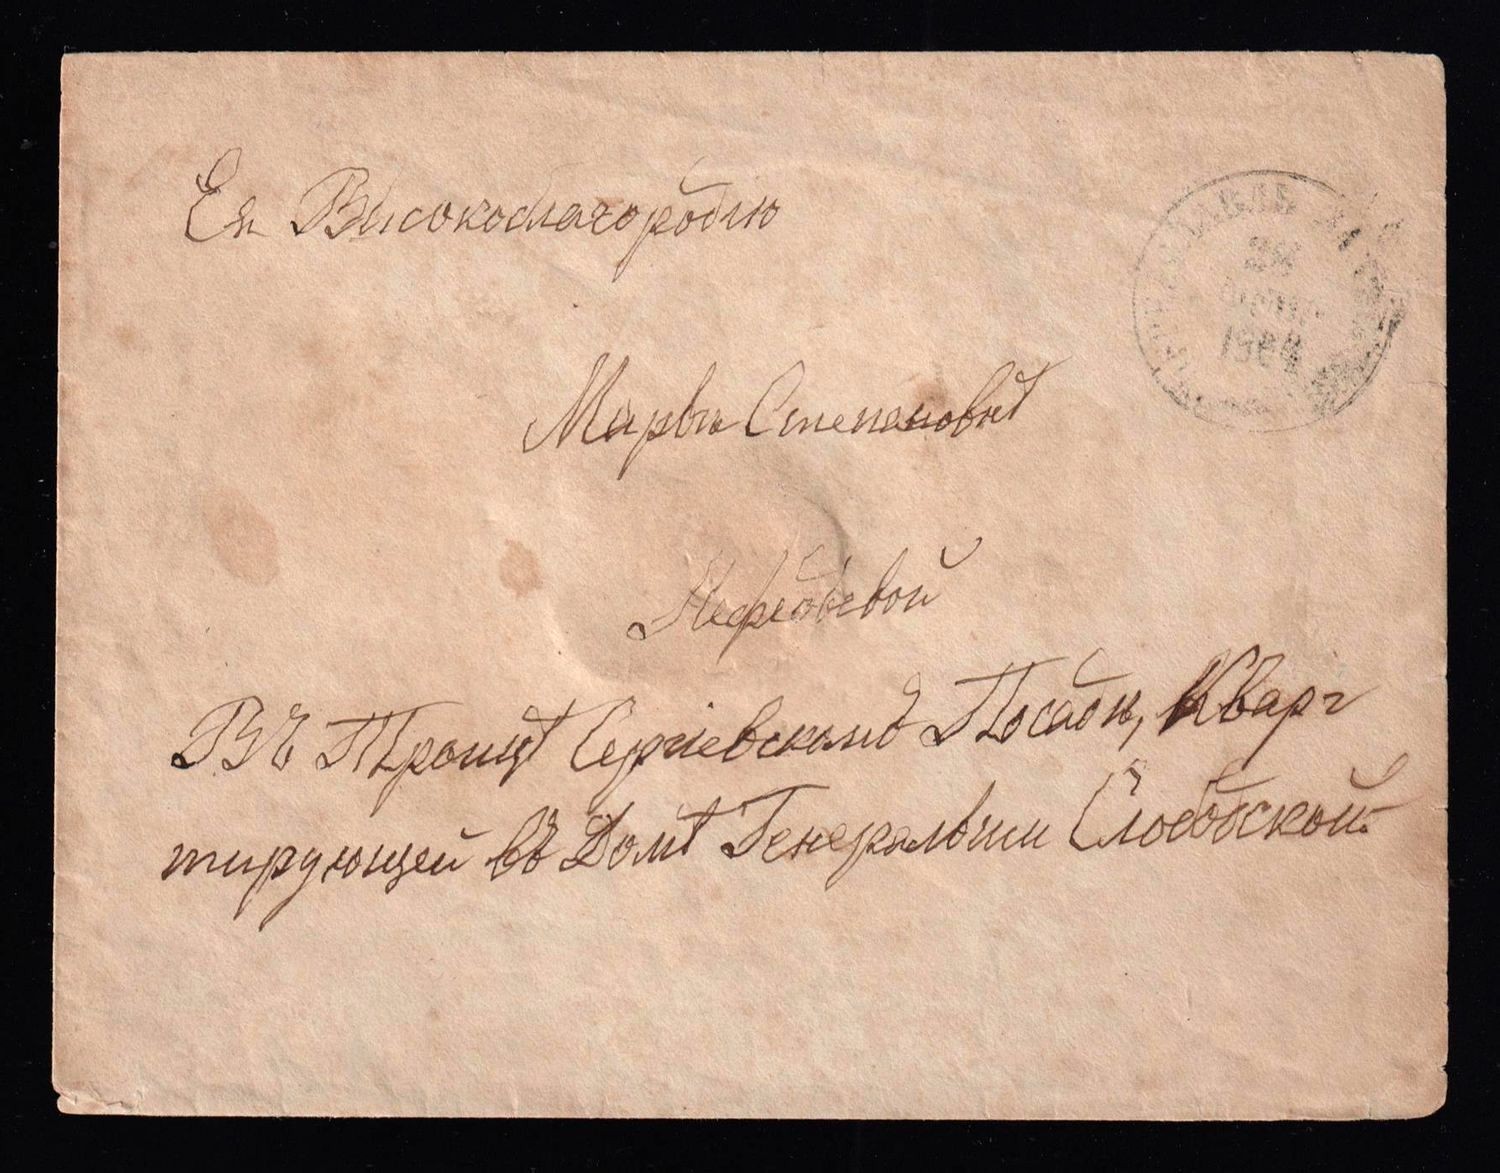 Ея Высокоблагородію
28
1904
Марьѣ Степановнѣ
Нефедьевой
Въ Троице Сергіевскомъ Посадѣ, Квар-
тирующей въ Домѣ Генеральши Слободской.